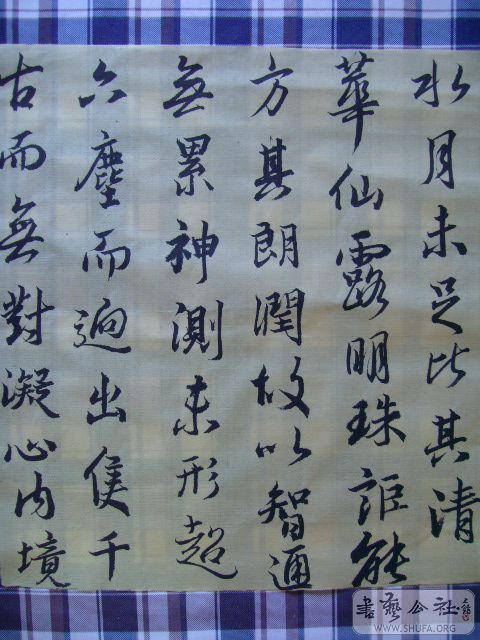 水月未足比其清
華仙露明珠詎能
方其朗潤故以智通
無累神測未形超
六塵而迥出隻千
古而無對凝心內境
書藝公社
WWW.SHUFA.ORG